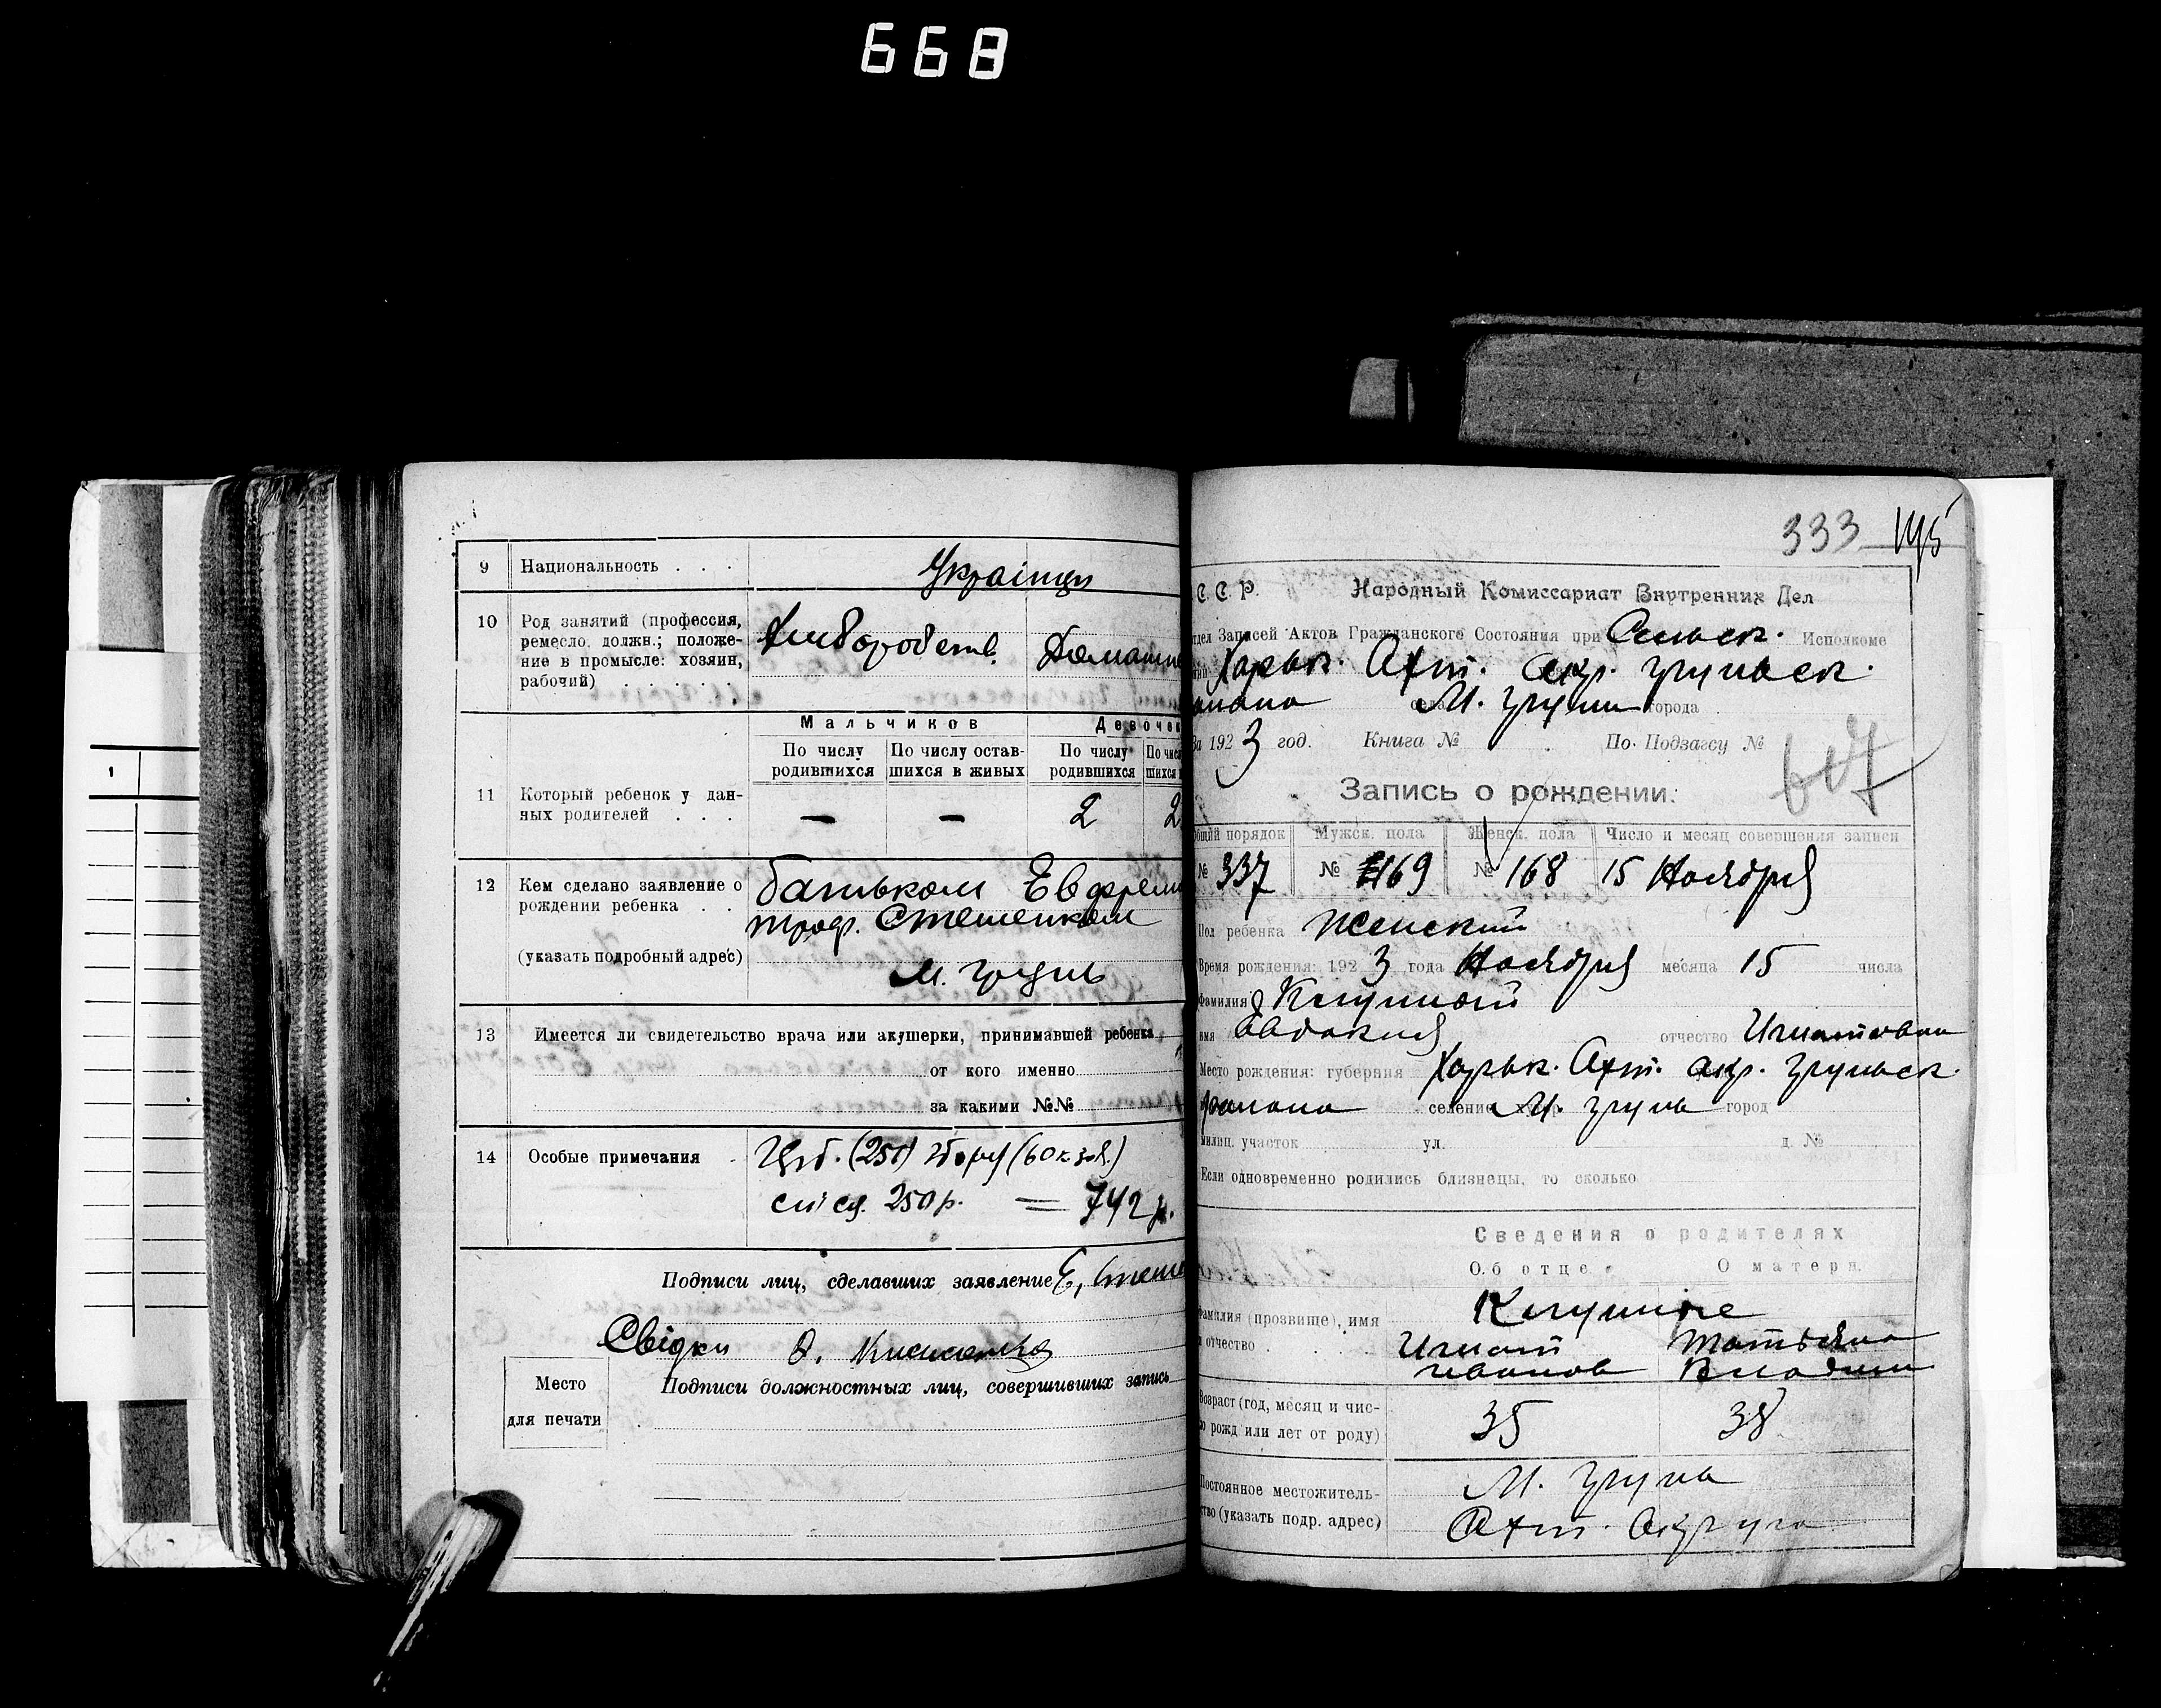 668
9 Национальность . . . Українци
10 Род занятий (профессия,
ремесло, должн.; положе-
ние в промысле: хозяин,
рабочий) . . . . . .
Хлiборобств. Домашн
Мальчиков Девочек
По числу родившихся По числу остав-шихся в живых По числу родившихся По чис шихся
11 Который ребенок у дан-
ных родителей . . . — — 2 2
12 Кем сделано заявление о
рождении ребенка . .
(указать подробный адрес)
батьком Евфрем
троф. Стешенком
м. Грунь
13 Имеется ли свидетельство врача или акушерки, принимавшей ребенка
от кого именно
за какими №№
14 Особые примечания
250р. = 742 р.
Подписи лиц, сделавших заявление Е, Стеше
Свідки
Место
для печати
Подписи должностных лиц, совершивших запись
333 195
С. С. Р. Народный Комиссариат Внутренних Дел
тдел Записей Актов Гражданского Состояния при Сельск. Исполкоме
Харьк. Ахт. окр. Грунськ.
М. Груни города
За 1923 год. Книга № По Подзагсу №
617
Запись о рождении.
общий порядок Мужск. пола Женск. пола Число и месяц совершения записи
№ 337 № 169 № 168 15 Ноября
Пол ребенка Женский
Время рождения: 1923 года Ноября месяца 15 числа
Фамилия
имя Евдокия отчество Игнатовна
Место рождения: губерния Харьк. Ахт. окр. Грунськ.
района селение М. Грунь город
милиц. участок ул. д. №
Если одновременно родились близнецы, то сколько
Сведения о родителях
Об отце. О матери.
Фамилия (прозвище), имя
и отчество . . . .
Игнат Татьяна
Иванов Владим
Возраст (год, месяц и чис-
ло рожд или лет от роду)
35 38
Постоянное местожитель-
ство (указать подр. адрес)
М. Груна
Ахт. Округа